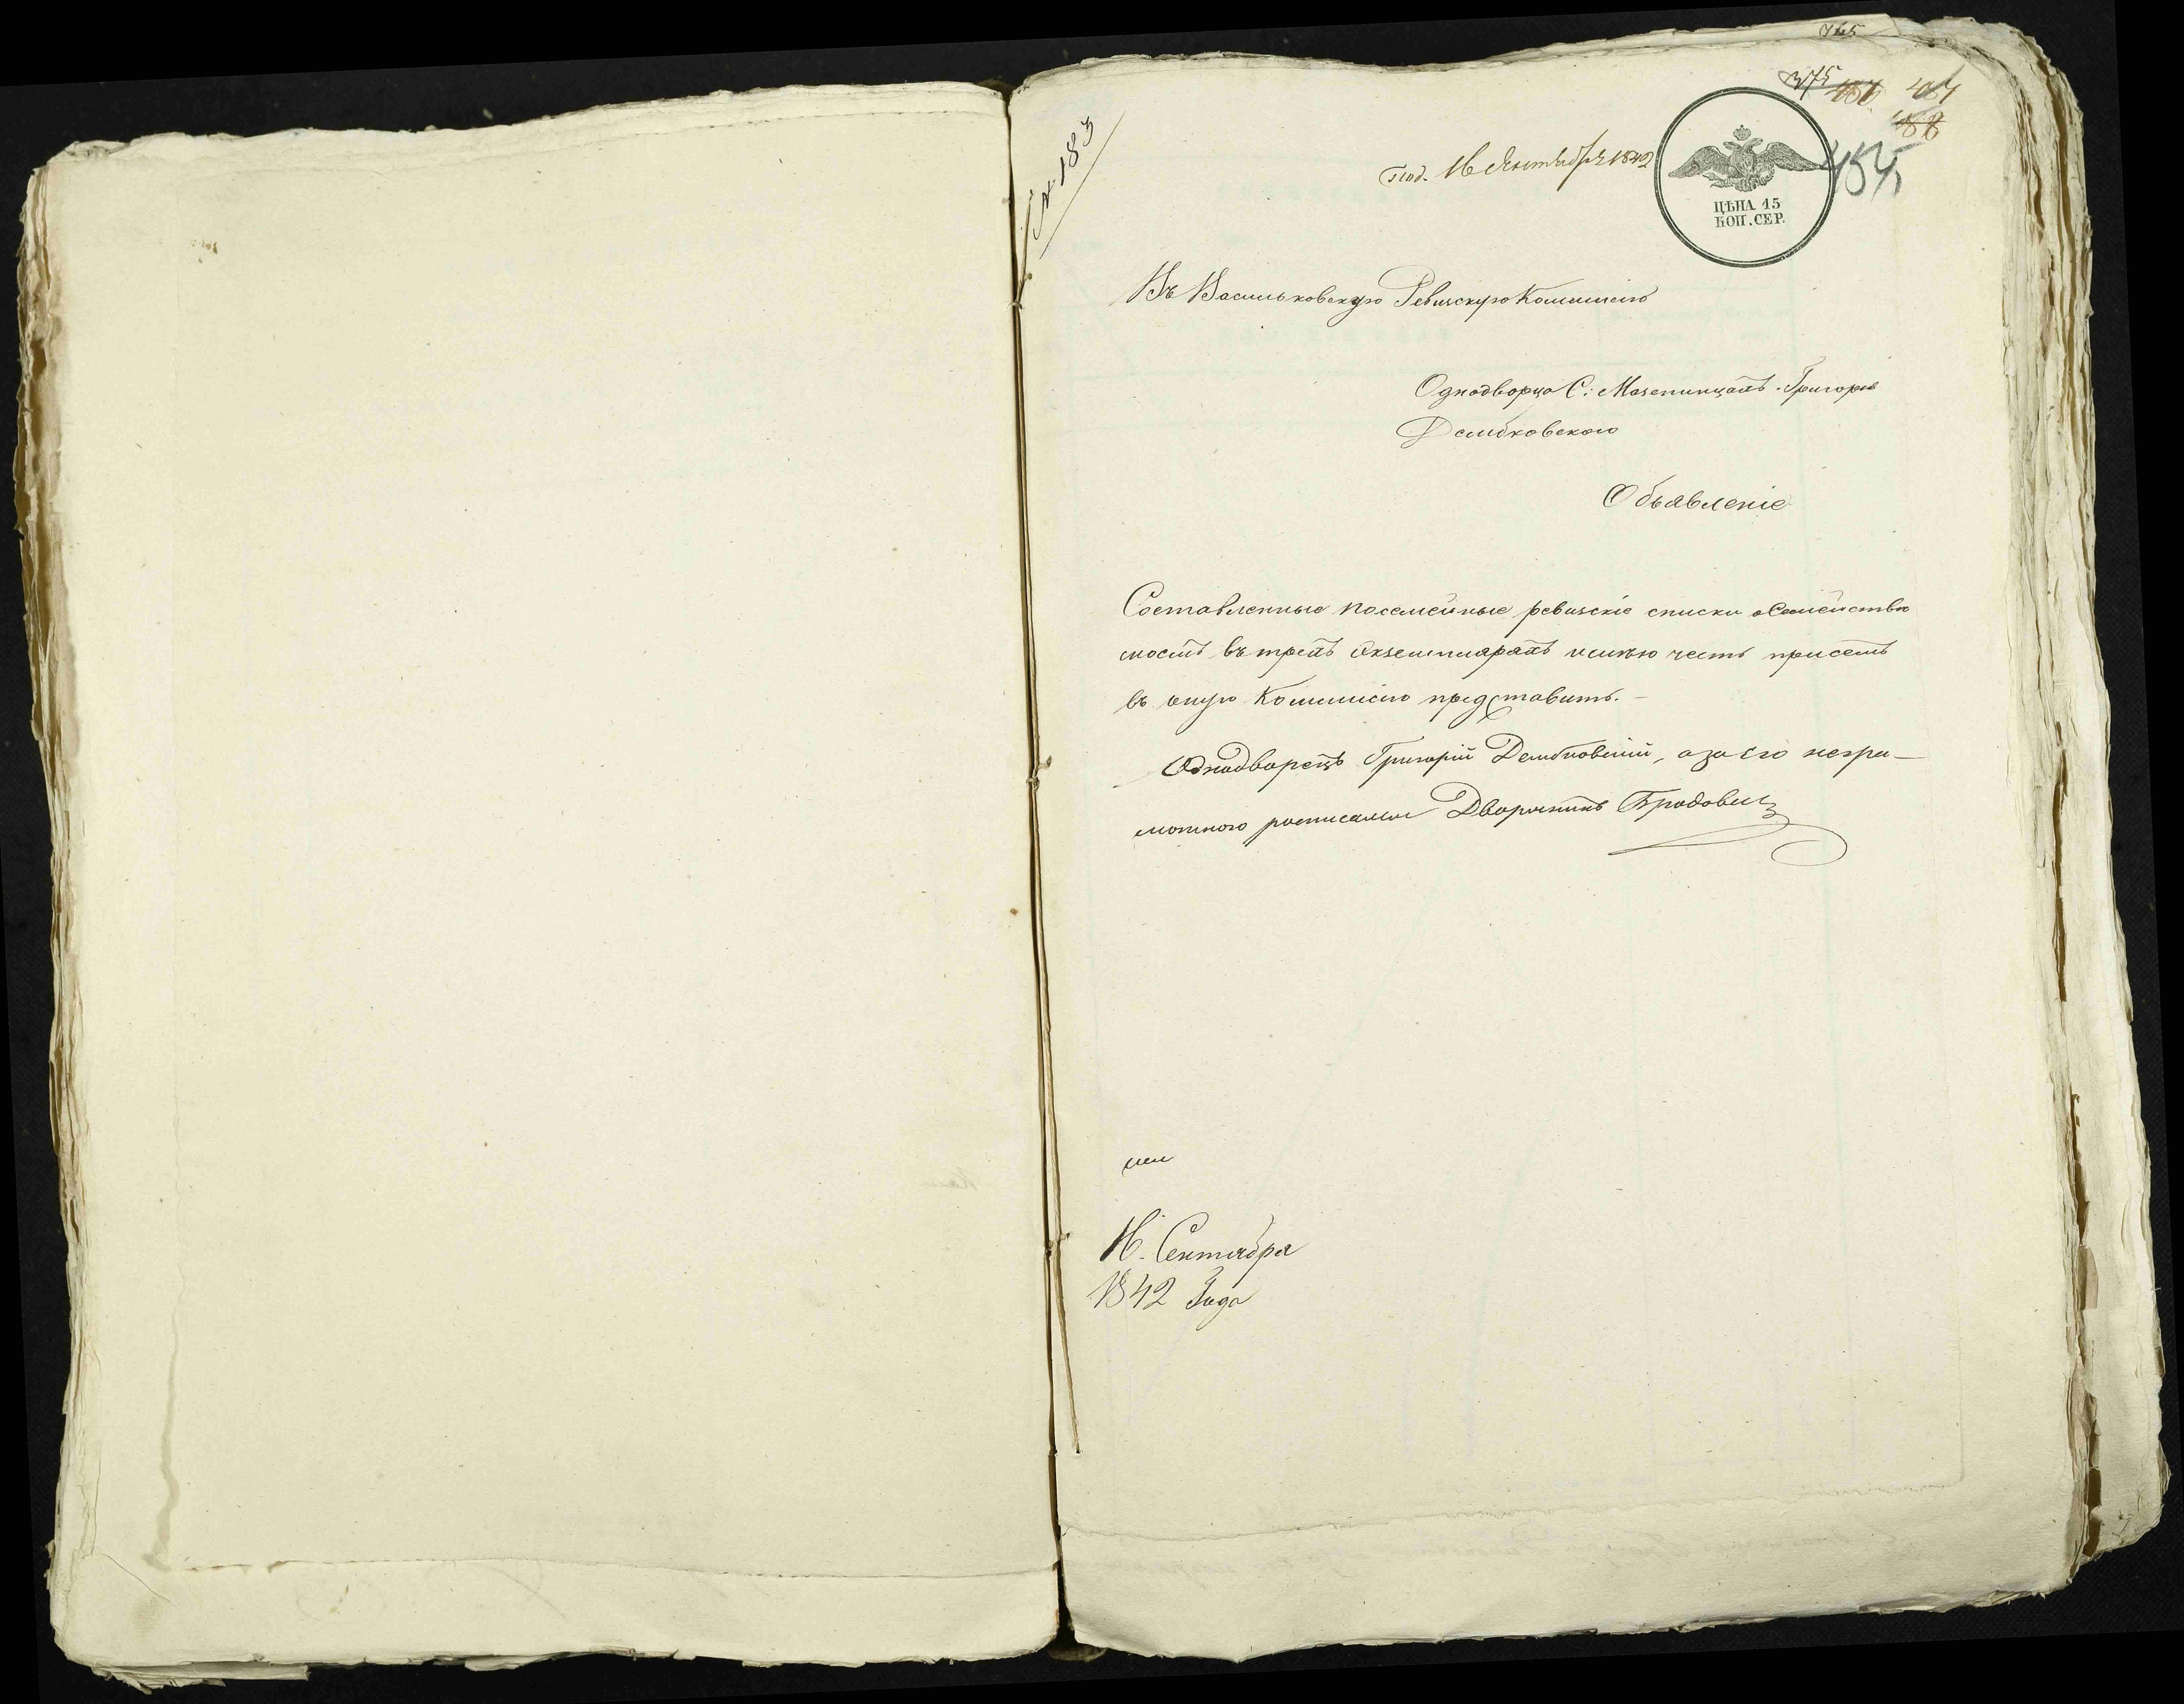 № 183
375
454
Под. 16 Сентября 1842
ЦѢНА 15
КОП. СЕР.
Въ Васильковскую Ревизскую Комисію
Однодворца С: Мазепинцахъ Григорія
Дембковского
Объявленіе
Составленные посемейные ревизскіе списки о Семействѣ
моемъ въ трехъ экземплярахъ имѣю честь присемъ
въ оную Комисію представить.–
Однодворецъ Григорій Дембковский, а за его негра–
мотного росписался Дворянинъ Бродович
16. Сентября
1842 Года